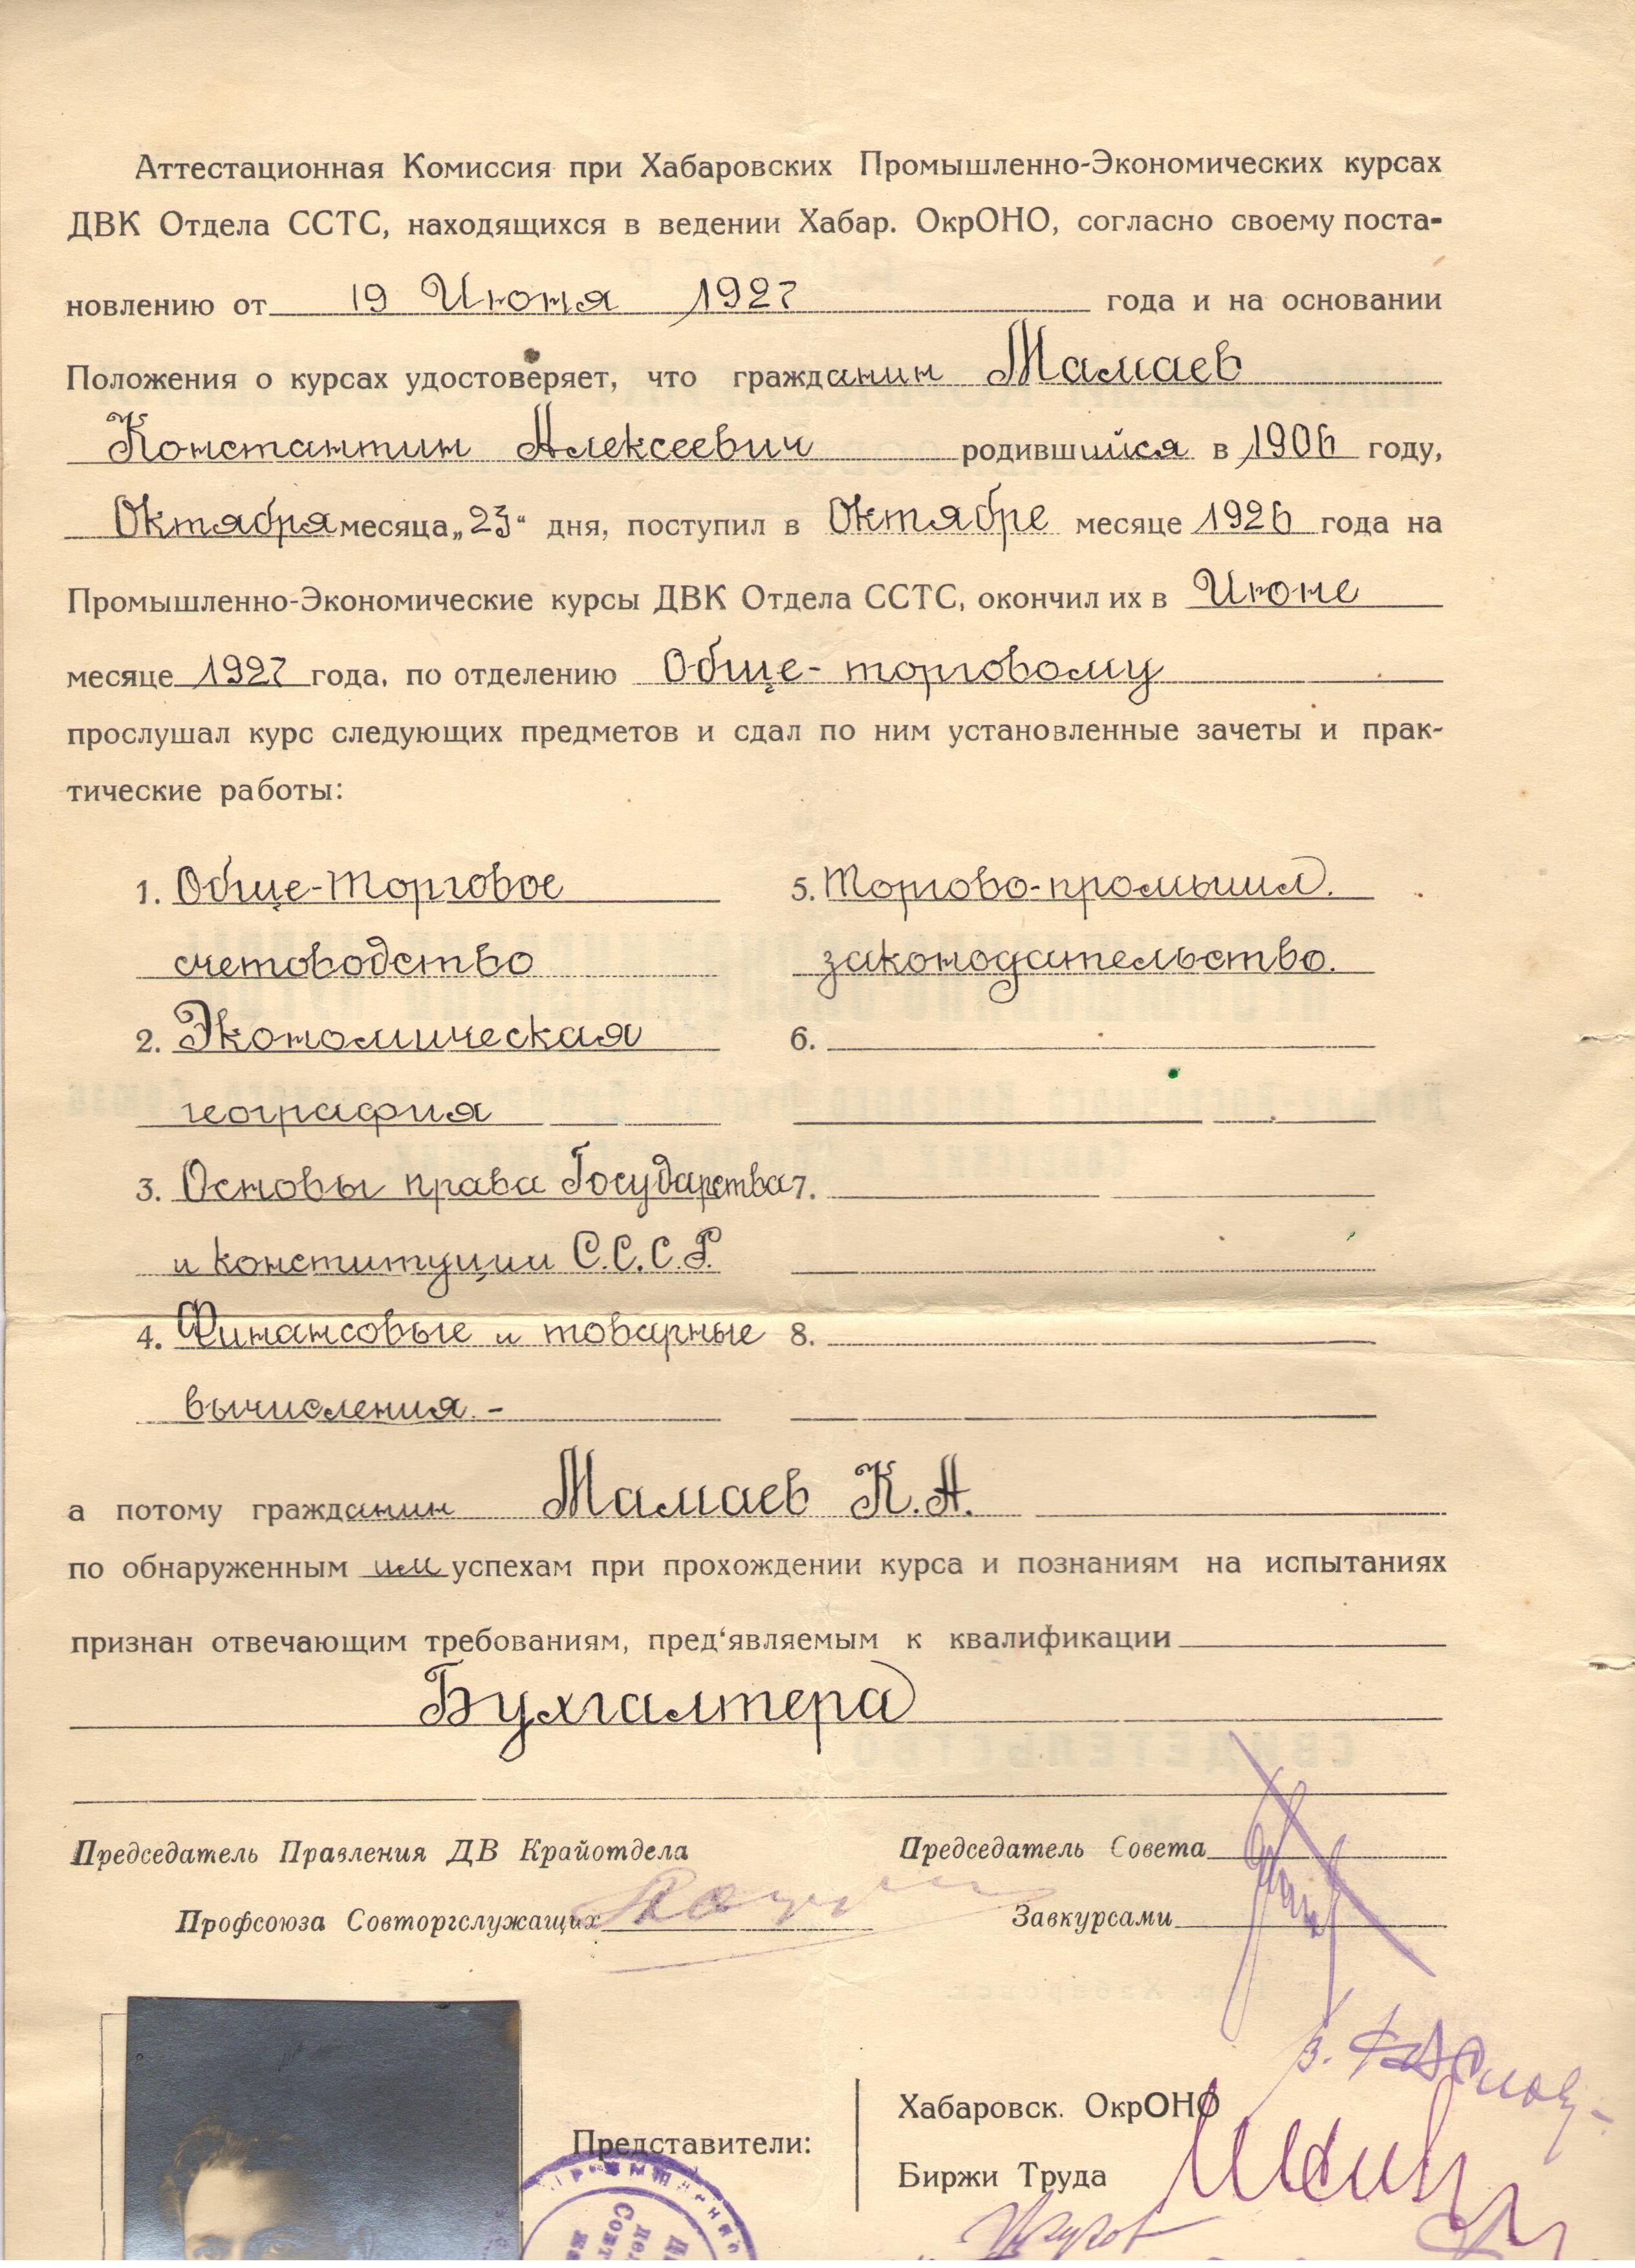 Аттестационная Комиссия при Хабаровских Промышленно-Экономических курсах
ДВК Отдела ССТС, находящихся в ведении Хабар. ОкрОНО, согласно своему поста-
новлению от 19 Июня 1927 года и на основании
Положения о курсах удостоверяет, что гражданин Мамаев
Константин Алексеевич родившийся в 1906 году,
Октября месяца „23“ дня, поступил в Октябре месяце 1926 года на
Промышленно-Экономические курсы ДВК Отдела ССТС, окончил их в Июне
месяце 1927 года, по отделению Обще-торговому
прослушал курс следующих предметов и сдал по ним установленные зачеты и прак-
тические работы:
1. Обще-Торговое
счетоводство
2. Экономическая
география
3. Основы права Государства
и конституции С.С.С.Р.
4. Финансовые и товарные
вычисления.-
5. Торгово-промышл.
законодательство.
6.
7.
8.
а потому гражданин Мамаев К.А.
по обнаруженным им успехам при прохождении курса и познаниям на испытаниях
признан отвечающим требованиям, пред‘являемым к квалификации
Бухгалтера
Председатель Правления ДВ Крайотдела
Профсоюза Совторгслужащих
Председатель Совета
Завкурсами
Представители:
Хабаровск. ОкрОНО
Биржи Труда